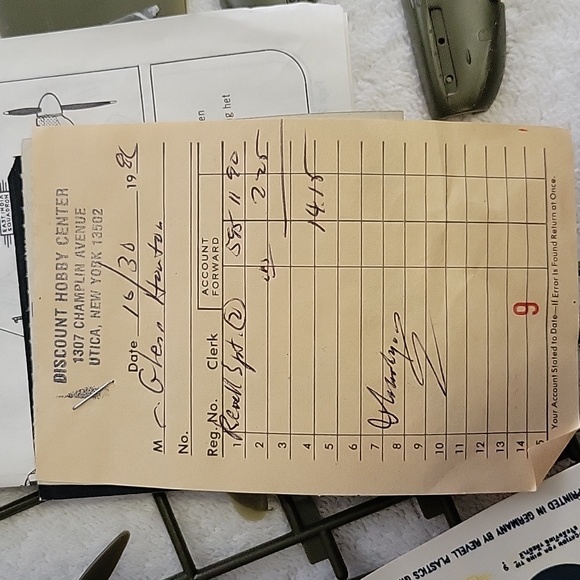 DISCOUNT HOBBY CENTER
1307 CHAMPLIN AVENUE
UTICA, NEW YORK 13502
Date 19
M Glenn
No.
Reg. No. Clerk ACCOUNT FORWARD
1 Revell Spt. (2) 595 11 90
2 2 25
3
4 14.15
5
6
7
8
9
10
11
12
13
14
15
9
Your Account Stated to Date—If Error Is Found Return at Once.
EAST INDIA
SQUADRON
en
g het
PRINTED IN GERMANY BY REVELL PLASTICS